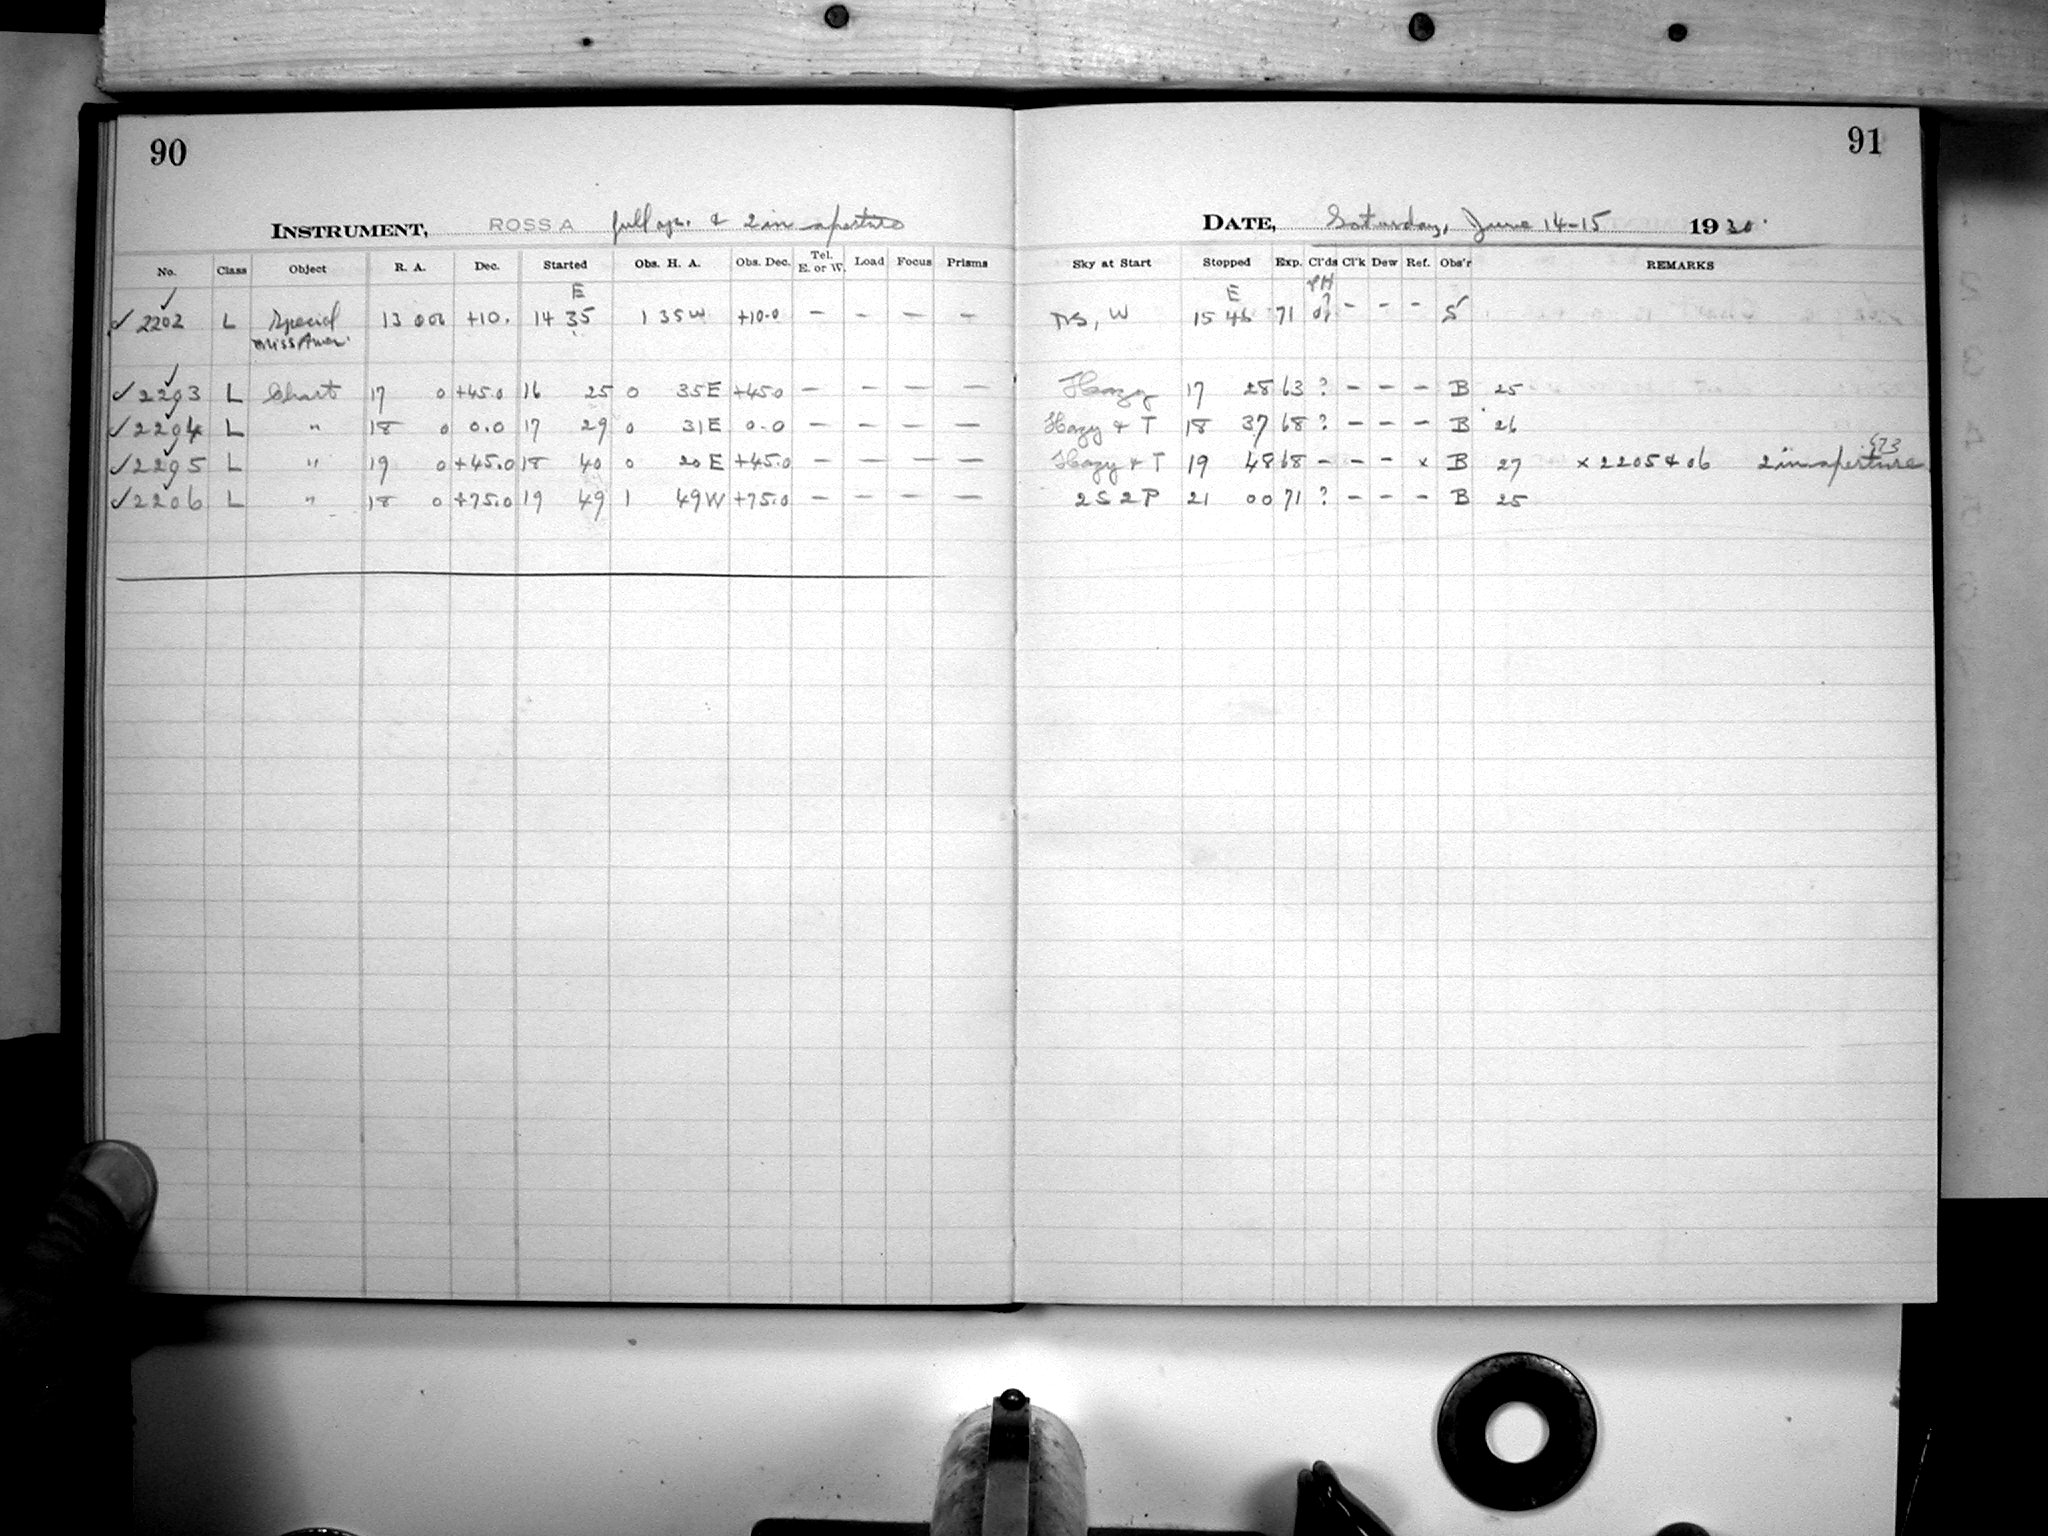 90
INSTRUMENT, ROSS A full ap. & 2 in aperture
No. Class Object R. A. Dec. Started Obs. H. A. Obs. Dec. Tel. E. or W. Load Focus Prisms
E
✓ 2202 L Special 13 000 +10. 14 35 1 35 W +10.0 — — — —
✓ 2203 L Chart 17 0 +45.0 16 25 0 35 E +45.0 — — — —
✓ 2204 L " 18 0 0.0 17 29 0 31 E 0.0 — — — —
✓ 2205 L " 19 0 +45.0 18 40 0 20 E +45.0 — — — —
✓ 2206 L " 18 0 +75.0 19 49 1 49 W +75.0 — — — —
91
DATE, Saturday, June 14-15 1930.
Sky at Start Stopped Exp. Cl'ds Cl'k Dew Ref. Obs'r REMARKS
E
15 46 71 – – – S
Hazy 17 28 63 ? – – – B 25
Hazy & T 18 37 68 ? – – – B 26
Hazy & T 19 48 68 – – – x B 27 x 2205 & 06 2 in aperture
2 S 2 P 21 00 71 ? – – – B 25